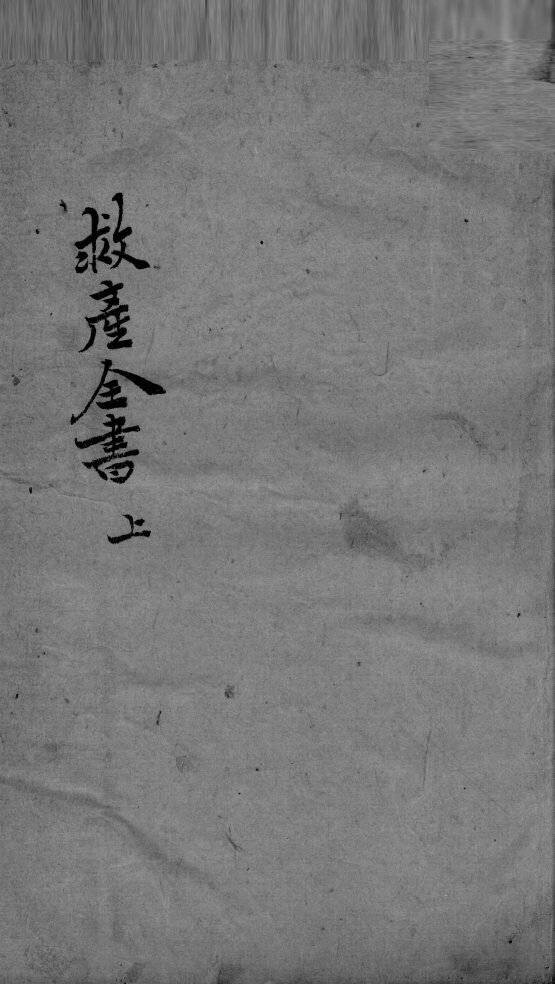 救產全書 上